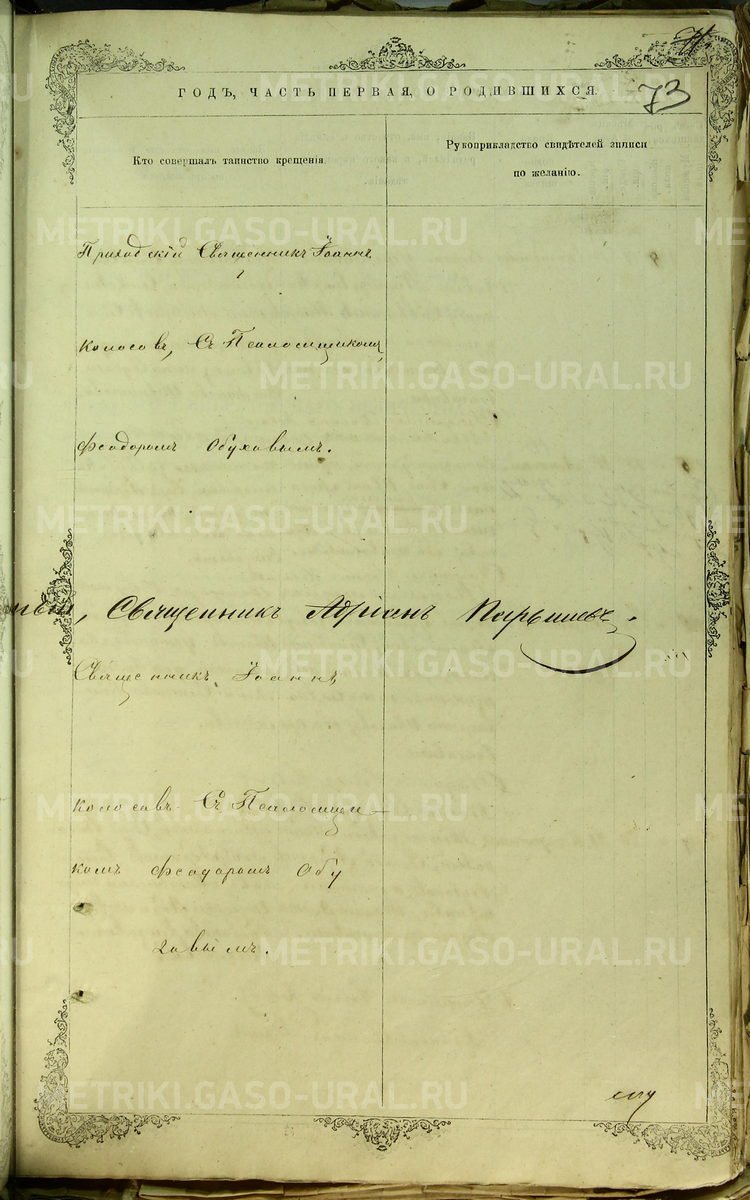 73
ГОДЪ, ЧАСТЬ ПЕРВАЯ, О РОДИВШИХСЯ.
Кто совершалъ таинство крещенія.
Рукоприкладство свидѣтелей записи
по желанію.
Приходскій Священникъ Іоаннъ
Колосовъ, Съ Псаломщикомъ,
Феодоромъ Обуховымъ.
Священникъ Адріанъ Парышевъ.
Священникъ Іоаннъ
Колосавъ Съ Псаломщи-
комъ Феодаромъ Обу
ховымъ.
METRIKI.GASO-URAL.RU